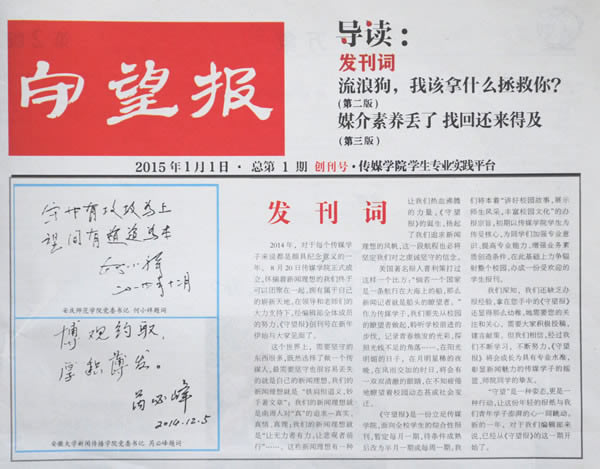 守望报
导读：
发刊词
流浪狗，我该拿什么拯救你？
（第二版）
媒介素养丢了 找回还来得及
（第三版）
2015年1月1日·总第1期 创刊号·传媒学院学生专业实践平台
守中有攻攻为上
望闻有道道为本
安庆师范学院党委书记 何小祥题词
博观约取，
厚积薄发。
芮必峰
2014.12.5
安徽大学新闻传播学院党委书记 芮必峰题词
发刊词
2014年，对于每个传媒学
子来说都是颇具纪念意义的一
年。8月20日传媒学院正式成
立，怀揣着新闻理想的我们终于
可以团聚在一起，拥有属于自己
的崭新天地。在领导和老师们的
大力支持下，经编辑部全体成员
的努力，《守望报》创刊号在新年
伊始与大家见面了。
这个世界上，需要坚守的
东西很多，既然选择了做一个传
媒人，最需要坚守也很容易丢失
的就是自己的新闻理想。我们的
新闻理想就是“铁肩担道义，妙
手著文章”；我们的新闻理想就
是南周人对“真”的追求—真实，
真情，真理；我们的新闻理想就
是“让无力者有力，让悲观者前
行”……。这些新闻理想有一种
让我们热血沸腾
的力量，《守望
报》的诞生，扬起
了我们追求新闻
理想的风帆，这一段航程也必将
坚定我们对之虔诚坚守的信念。
美国著名报人普利策打过
这样一个比方：“倘若一个国家
是一条航行在大海上的船，那么
新闻记者就是船头的瞭望者。”
作为传媒学子，我们要先从校园
的瞭望者做起，聆听学校前进的
步伐，记录青春焕发的光彩，探
照光线不足的角落……，在阳光
明媚的日子，在月明星稀的夜
晚，在风雨交加的时日，将会有
一双双清澈的眼睛，在不知疲倦
地瞭望着校园动态甚或社会变
迁。
《守望报》是一份立足传媒
学院，面向全校学生的综合性报
刊，暂定每月一期，待条件成熟
后改为半月一期或每周一期。我
们将本着“讲好校园故事，展示
师生风采，丰富校园文化”的办
报宗旨，初期以传媒学院学生为
传受核心，为同学们加强专业意
识，提高专业能力，增强业务素
质创造条件，在此基础上力争辐
射整个校园，办成一份受欢迎的
学生报刊。
我们深知，我们还缺乏办
报经验，拿在您手中的《守望报》
还显得那么幼稚，她需要您的关
注和关心，需要大家积极投稿，
建言献策，但我们相信，经过我
们不断学习、不断努力，《守望
报》将会成长为具有专业水准，
彰显新闻魅力的传媒学子的摇
篮，师院同学的挚友。
“守望”是一种姿态，更是一
种行动，让这份年轻的报纸与我
们青年学子澎湃的心一同跳动，
新的一年，对于我们编辑部来
说，已经从《守望报》的这一期开
始了。